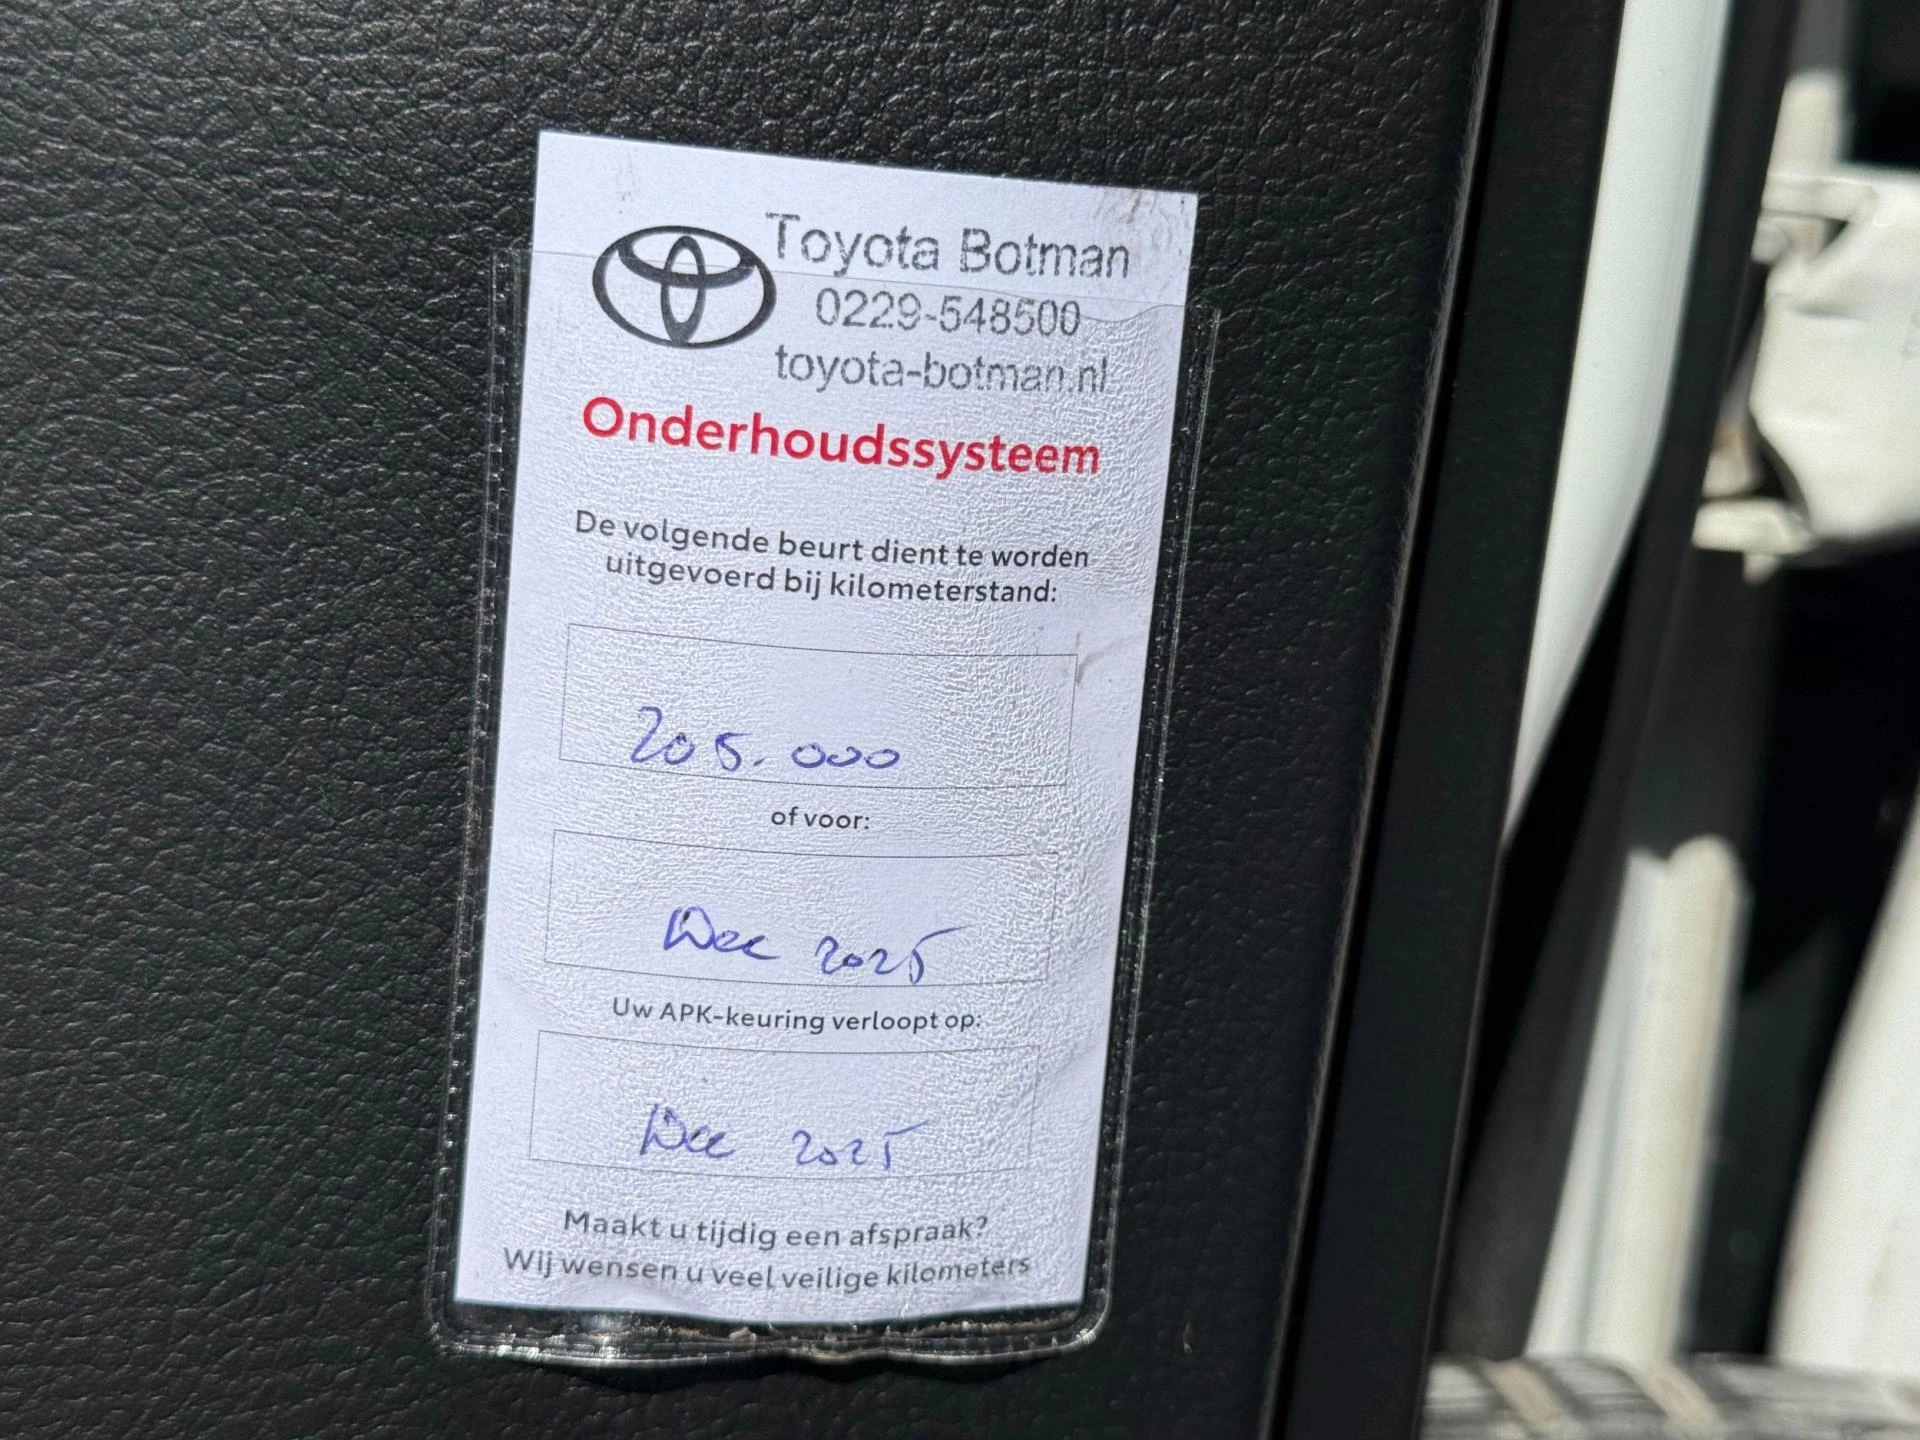 Toyota Botman
0229-548500
toyota-botman.nl
Onderhoudssysteem
De volgende beurt dient te worden
uitgevoerd bij kilometerstand:
205.000
of voor:
Dec 2025
Uw APK-keuring verloopt op:
Dec 2025
Maakt u tijdig een afspraak?
Wij wensen u veel veilige kilometers